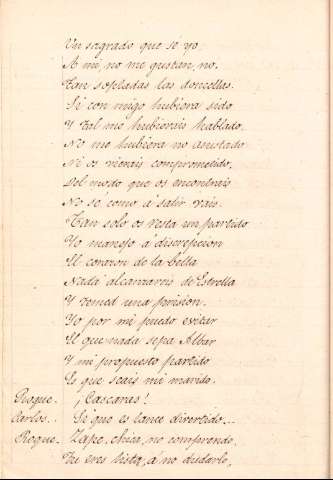 Un sagrado que sé yo.
A mi, no me gustan, no,
Tan sopladas las doncellas.
Si con migo hubiera sido
Y tal me hubierais hablado,
No me hubiera no asustado
Ni os vierais comprometido.
Del modo que os encontrais
No sé como á salir vais.
Tan solo os resta un partido
Yo manejo á discrepcion
El corazon de la bella
Nada alcanzareis de Estrella
Y temed una prision.
Yo por mi puedo evitar
El que nada sepa Albar
Y mi propuesto partido
Es que seais mi marido.
Roque. ¡Cascaras!
Carlos. Si que es lance divertido...
Roque. Zape, chica, no comprendo,
Tu eres lista, á no dudarlo,